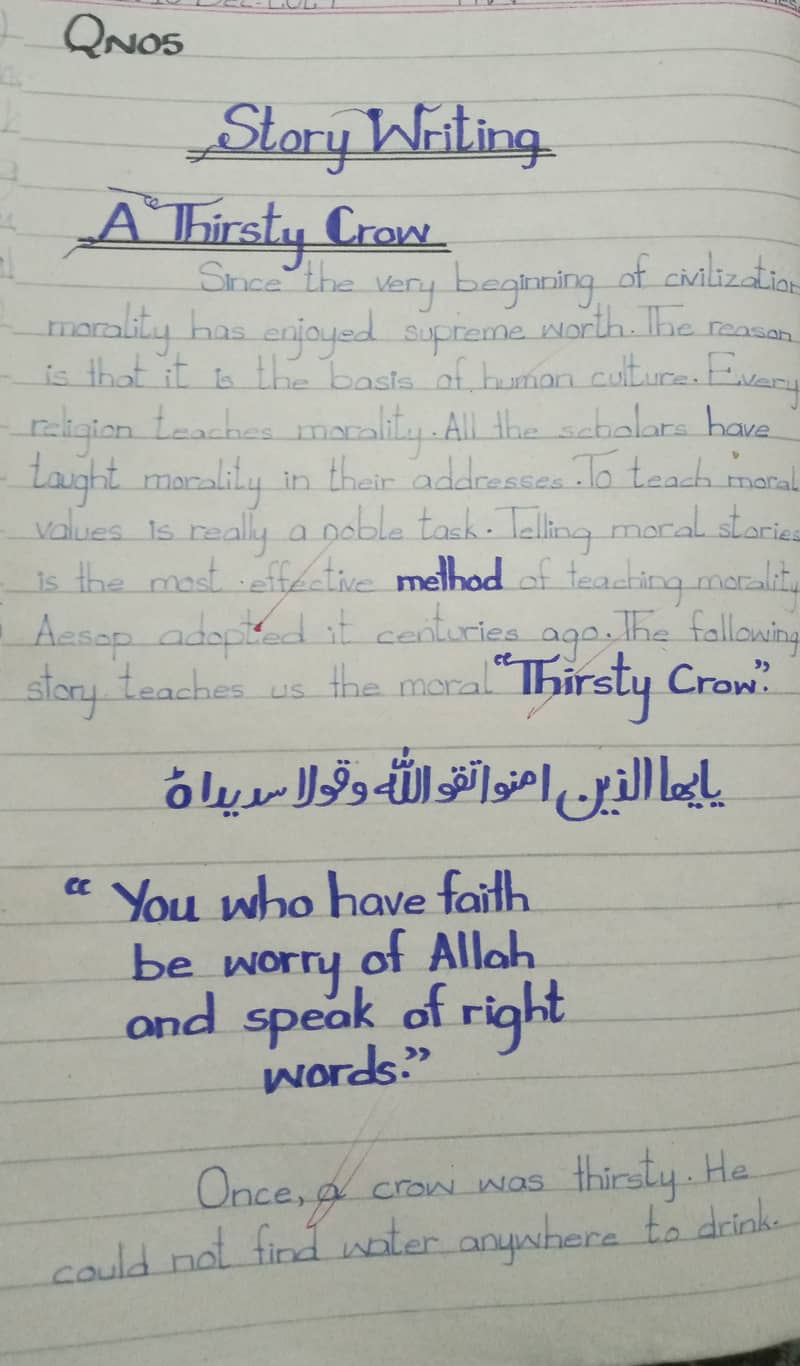 QNO5
Story Writing
A "Thirsty Crow
Since the very beginning of civilization
morality has enjoyed supreme worth. The reason
is that it is the basis of human culture. Every
religion teaches morality. All the scholars have
taught morality in their addresses. To teach moral
values is really a noble task. Telling moral stories
is the most effective method of teaching morality
Aesop adopted it centuries ago. The following
story teaches us the moral "Thirsty Crow".
يايها الذين امنوا تقو الله وقولا سديداہ
"You who have faith
be worry of Allah
and speak of right
words."
Once, a crow was thirsty. He
could not find water anywhere to drink.